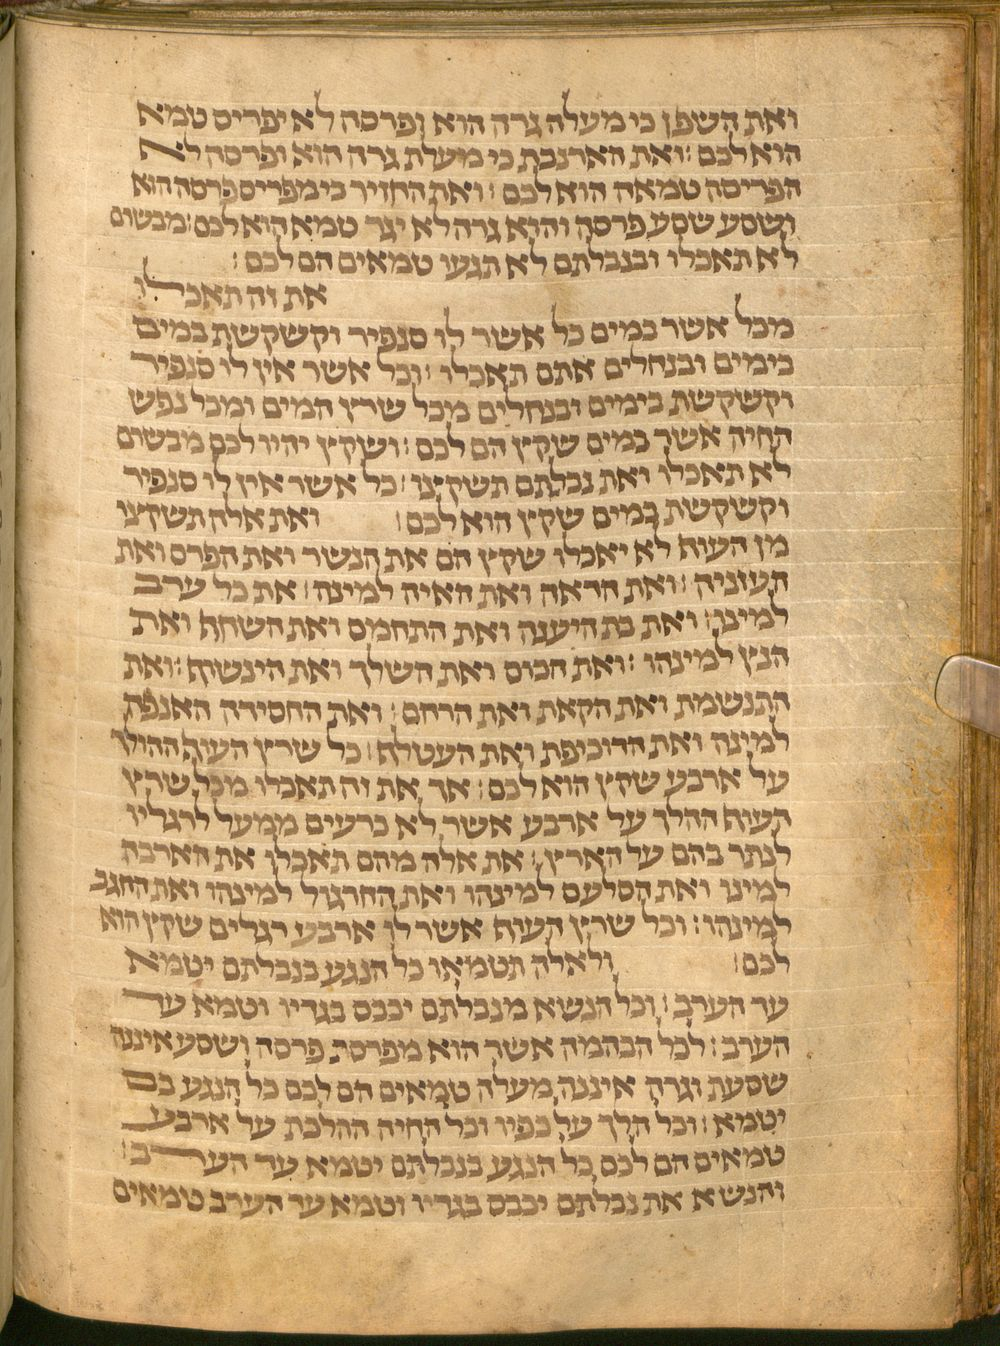 ואת השפן כי מעלה גרה הוא ופרסה לא יפריס טמא
הוא לכם : ואת הארנבת כי מעלת גרה הוא ופרסה לא
הפריסה טמאה הוא לכם : ואת החזיר כי מפריס פרסה הוא
ושסע שסע פרסה והוא גרה לא יגר טמא הוא לכם : מבשרם
לא תאכלו ובנבלתם לא תגעו טמאים הם לכם :
את זה תאכלו
מכל אשר במים כל אשר לו סנפיר וקשקשת במים
בימים ובנחלים אתם תאכלו : וכל אשר אין לו סנפיר
וקשקשת בימים ובנחלים מכל שרץ המים ומכל נפש
החיה אשר במים שקץ הם לכם : ושקץ יהיו לכם מבשרם
לא תאכלו ואת נבלתם תשקיצו : כל אשר אין לו סנפיר
וקשקשת במים שקץ הוא לכם : ואת אלה תשקצו
מן העוף לא יאכלו שקץ הם את הנשר ואת הפרס ואת
העזניה : ואת הדאה ואת האיה למינה : את כל ערב
למינו : ואת בת היענה ואת התחמס ואת השחף ואת
הנץ למינהו : ואת הכוס ואת השלך ואת הינשוף : ואת
התנשמת ואת הקאת ואת הרחם : ואת החסידה האנפה
למינה ואת הדוכיפת ואת העטלף : כל שרץ העוף ההולך
על ארבע שקץ הוא לכם : אך את זה תאכלו מכל שרץ
העוף ההלך על ארבע אשר לא כרעים ממעל לרגליו
לנתר בהם על הארץ : את אלה מהם תאכלו את הארבה
למינו ואת הסלעם למינהו ואת החרגול למינהו ואת החגב
למינהו : וכל שרץ העוף אשר לו ארבע רגלים שקץ הוא
לכם : ולאלה תטמאו כל הנגע בנבלתם יטמא
עד הערב : וכל הנשא מנבלתם יכבס בגדיו וטמא עד
הערב : לכל הבהמה אשר הוא מפרסת פרסה ושסע איננה
שסעת וגרה איננה מעלה טמאים הם לכם כל הנגע בם
יטמא : וכל הלך על כפיו וכל החיה ההלכת על ארבע
טמאים הם לכם כל הנגע בנבלתם יטמא עד הערב :
והנשא את נבלתם יכבס בגדיו וטמא עד הערב טמאים